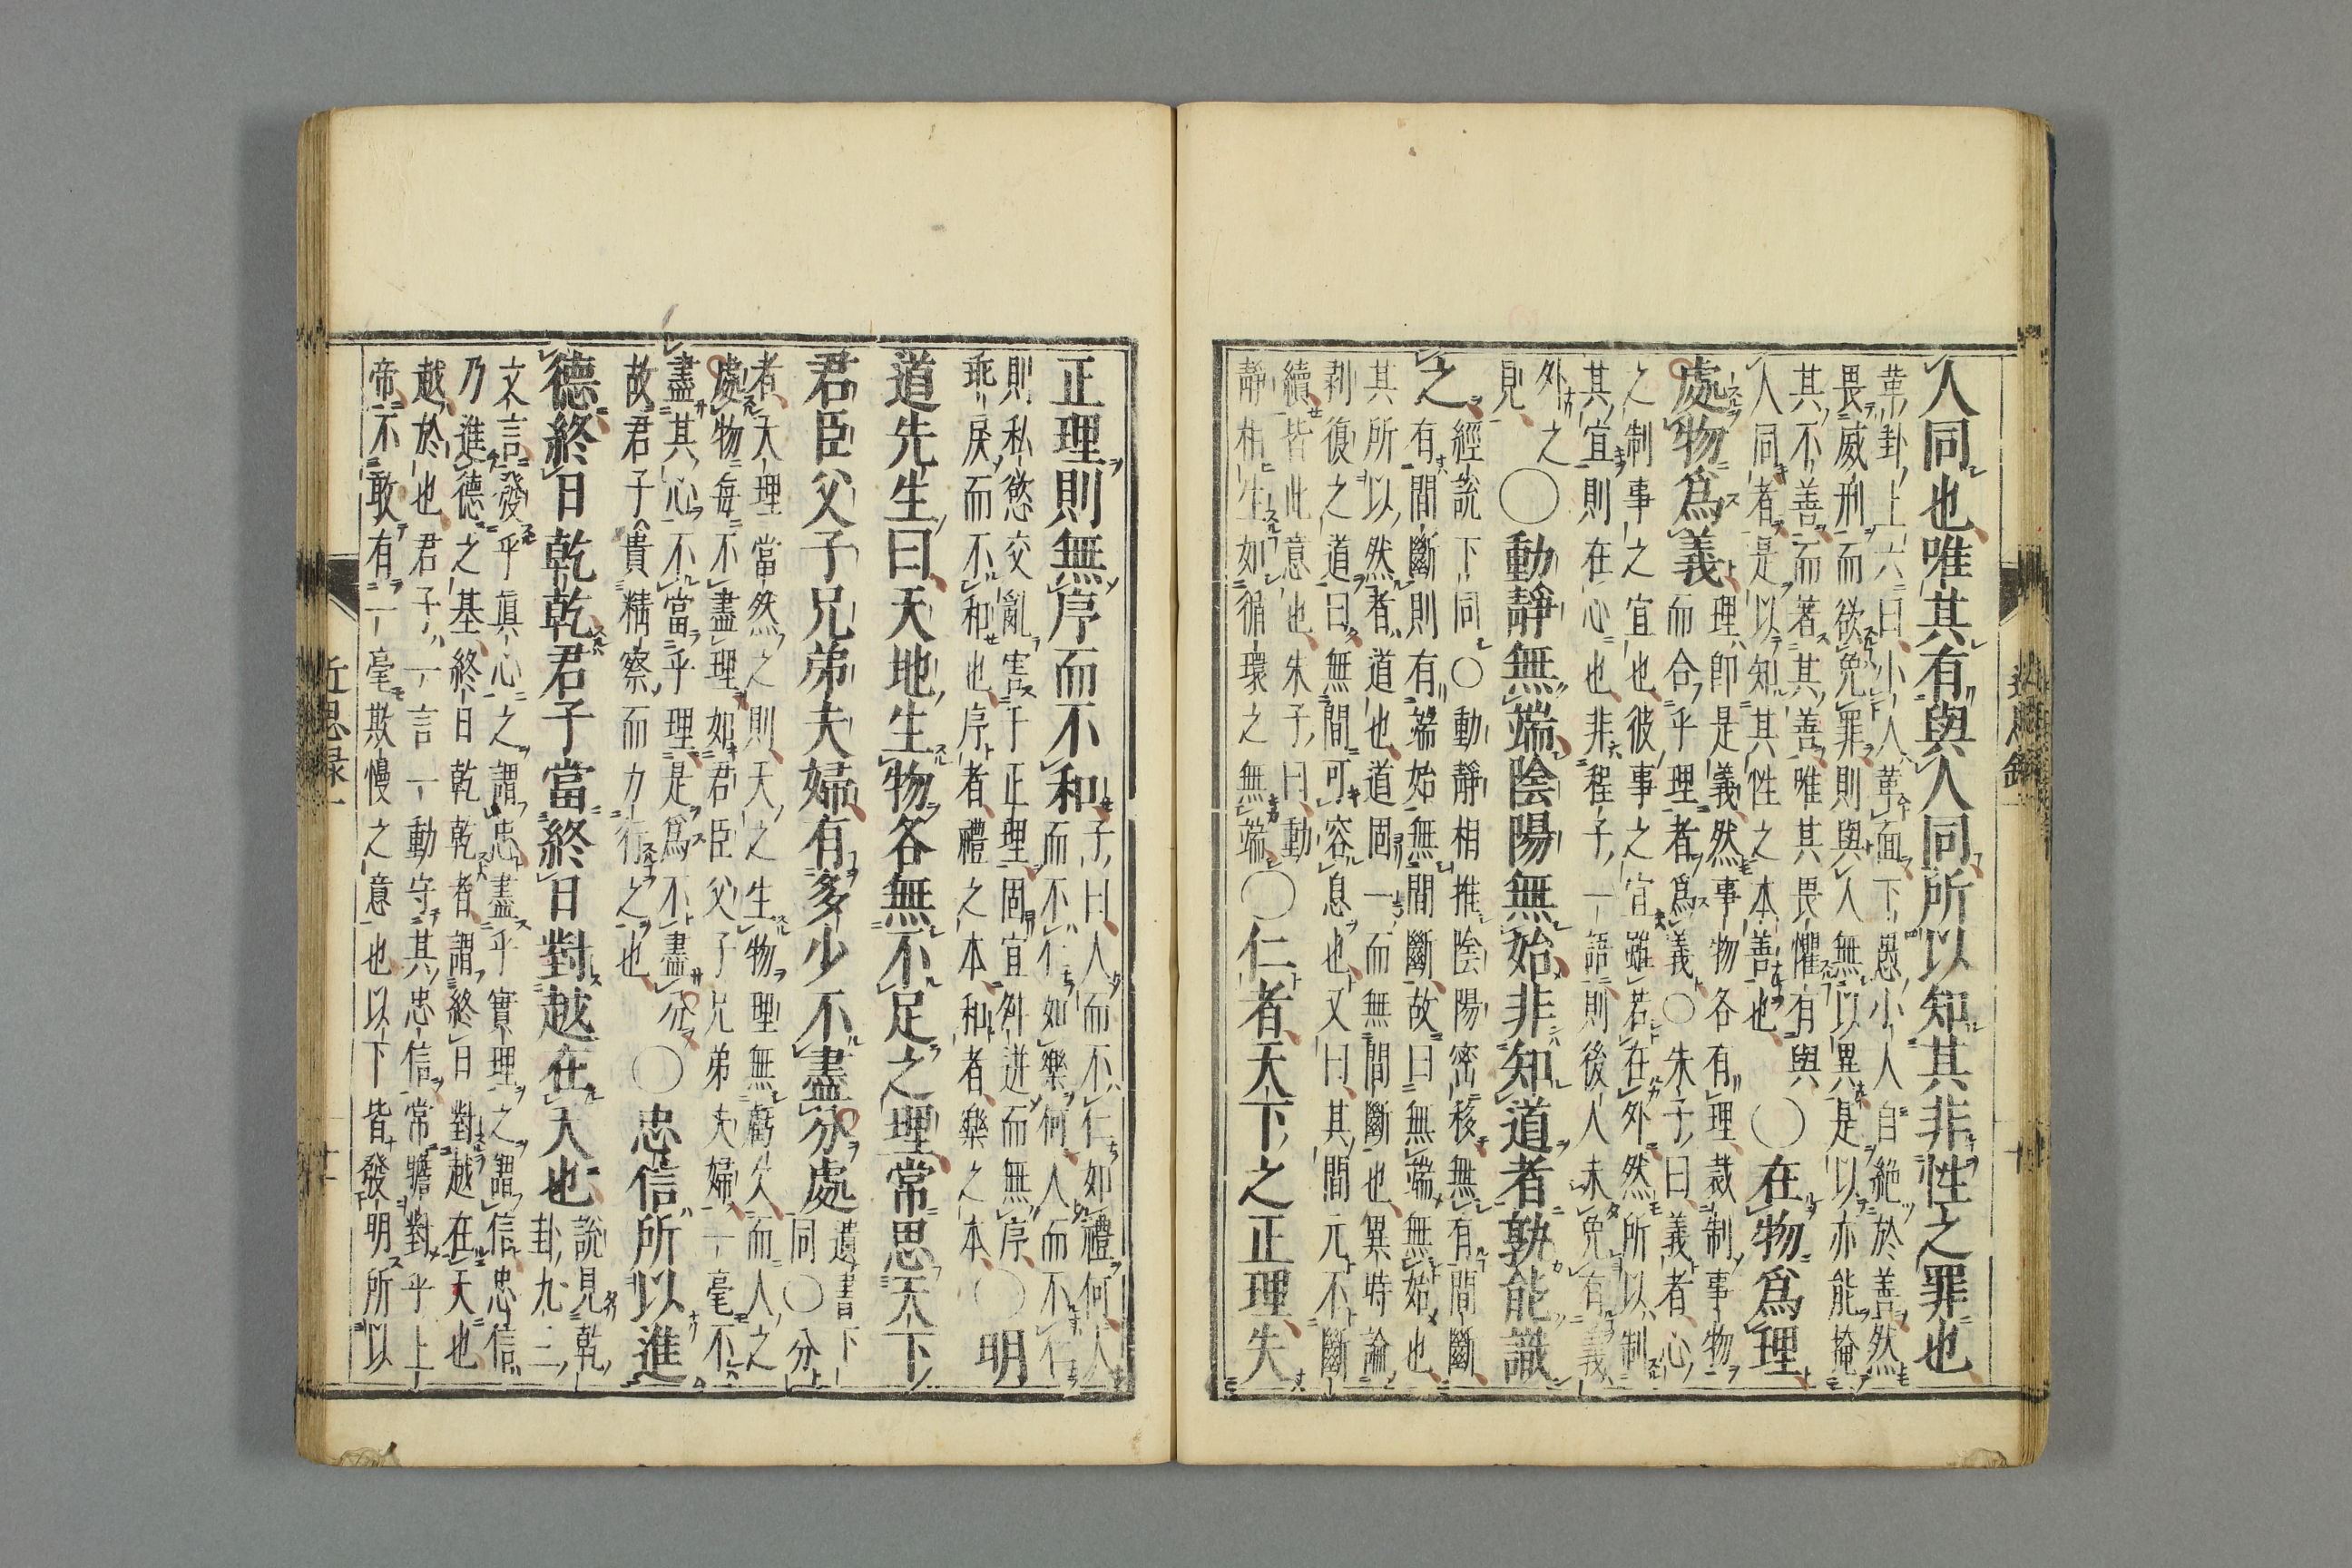 人同也唯其有與人同所以知其非性之罪也
革卦上六曰小人革面下愚小人自絶於善然
畏威刑而欲免罪則與人無以異是以亦能掩
其不善而著其善唯其畏懼有與
人同者是以知其性之本善也
〇在物爲理
處物爲義
理即是義然事物各有理裁制事物
而合乎理者爲義〇朱子曰義者心
之制事之宜也彼事之宜雖若在外然所以制
其宜則在心也非程子一語則後人未免有義
外之
見
〇動靜無端陰陽無始非知道者孰能識
之
經說下同〇動靜相推陰陽密移無有間斷
有間斷則有端始無間斷故曰無端無始也
其所以然者道也道固一而無間斷也異時論
剥復之道曰無間可容息也又曰其間元不斷
續皆此意也朱子曰動
靜相生如循環之無端
〇仁者天下之正理失
正理則無序而不和
子曰人而不仁如禮何人
而不仁如樂何人而不仁
則私慾交亂害于正理固宜舛逆而無序
乖戾而不和也序者禮之本和者樂之本
〇明
道先生曰天地生物各無不足之理常思天下
君臣父子兄弟夫婦有多少不盡分處
遺書下
同〇分
者天理當然之則天之生物理無虧欠而人之
處物每不盡理如君臣父子兄弟夫婦一毫不
盡其心不當乎理是爲不盡分
故君子貴精察而力行之也
〇忠信所以進
德終日乾乾君子當終日對越在天也
說見乾
卦九三
文言發乎眞心之謂忠盡乎實理之謂信忠信
乃進德之基終日乾乾者謂終日對越在天也
越於也君子一言一動守其忠信常瞻對乎上
帝不敢有一毫欺慢之意也以下皆發明所以
近思録一